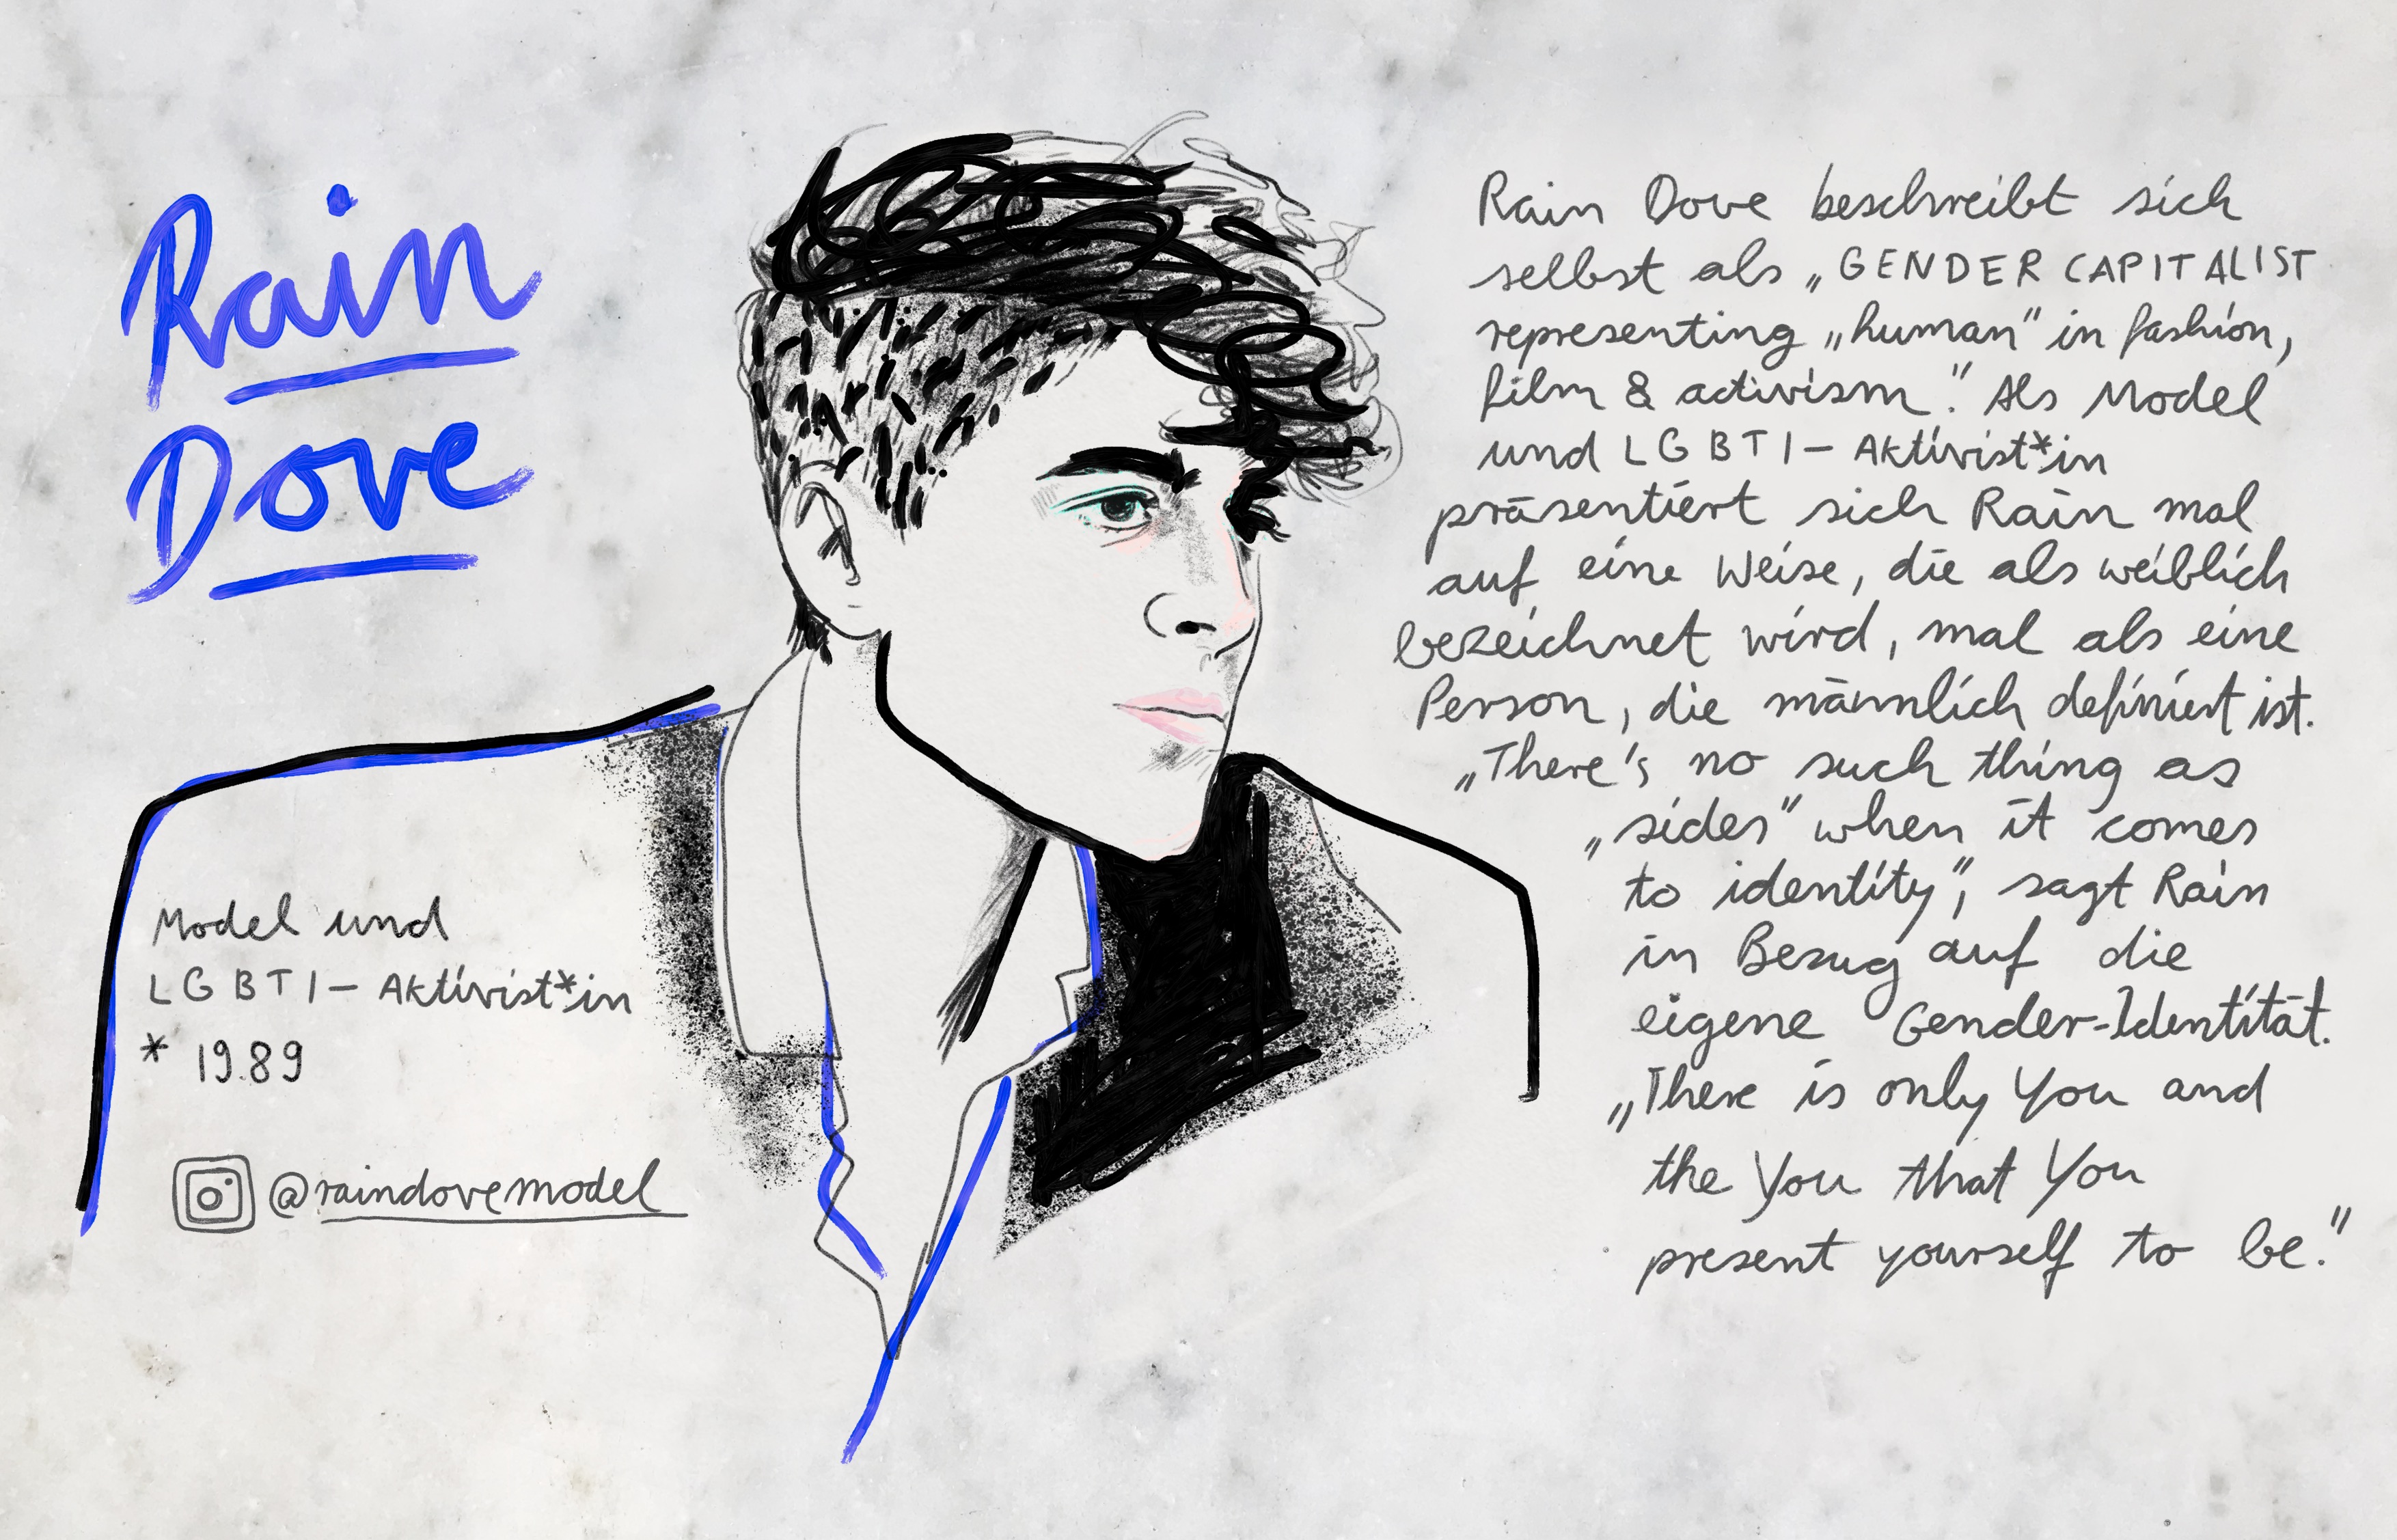 Rain
Dove
Model und
LGBTI-Aktivist*in
* 1989
@raindovemodel
Rain Dove beschreibt sich
selbst als „GENDER CAPITALIST
representing „human" in fashion,
film & activism." Als Model
und LGBTI-Aktivist*in
präsentiert sich Rain mal
auf eine Weise, die als weiblich
bezeichnet wird, mal als eine
Person, die männlich definiert ist.
„There's no such thing as
„sides" when it comes
to identity", sagt Rain
in Bezug auf die
eigene Gender-Identität.
„There is only You and
the You that You
present yourself to be."